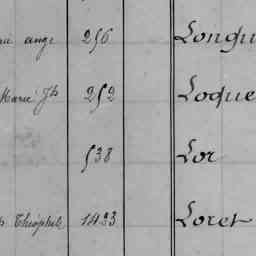 ange 256 Longu
Marie Jh 252 Loque
538 Lor
Théophile 1433 Loret